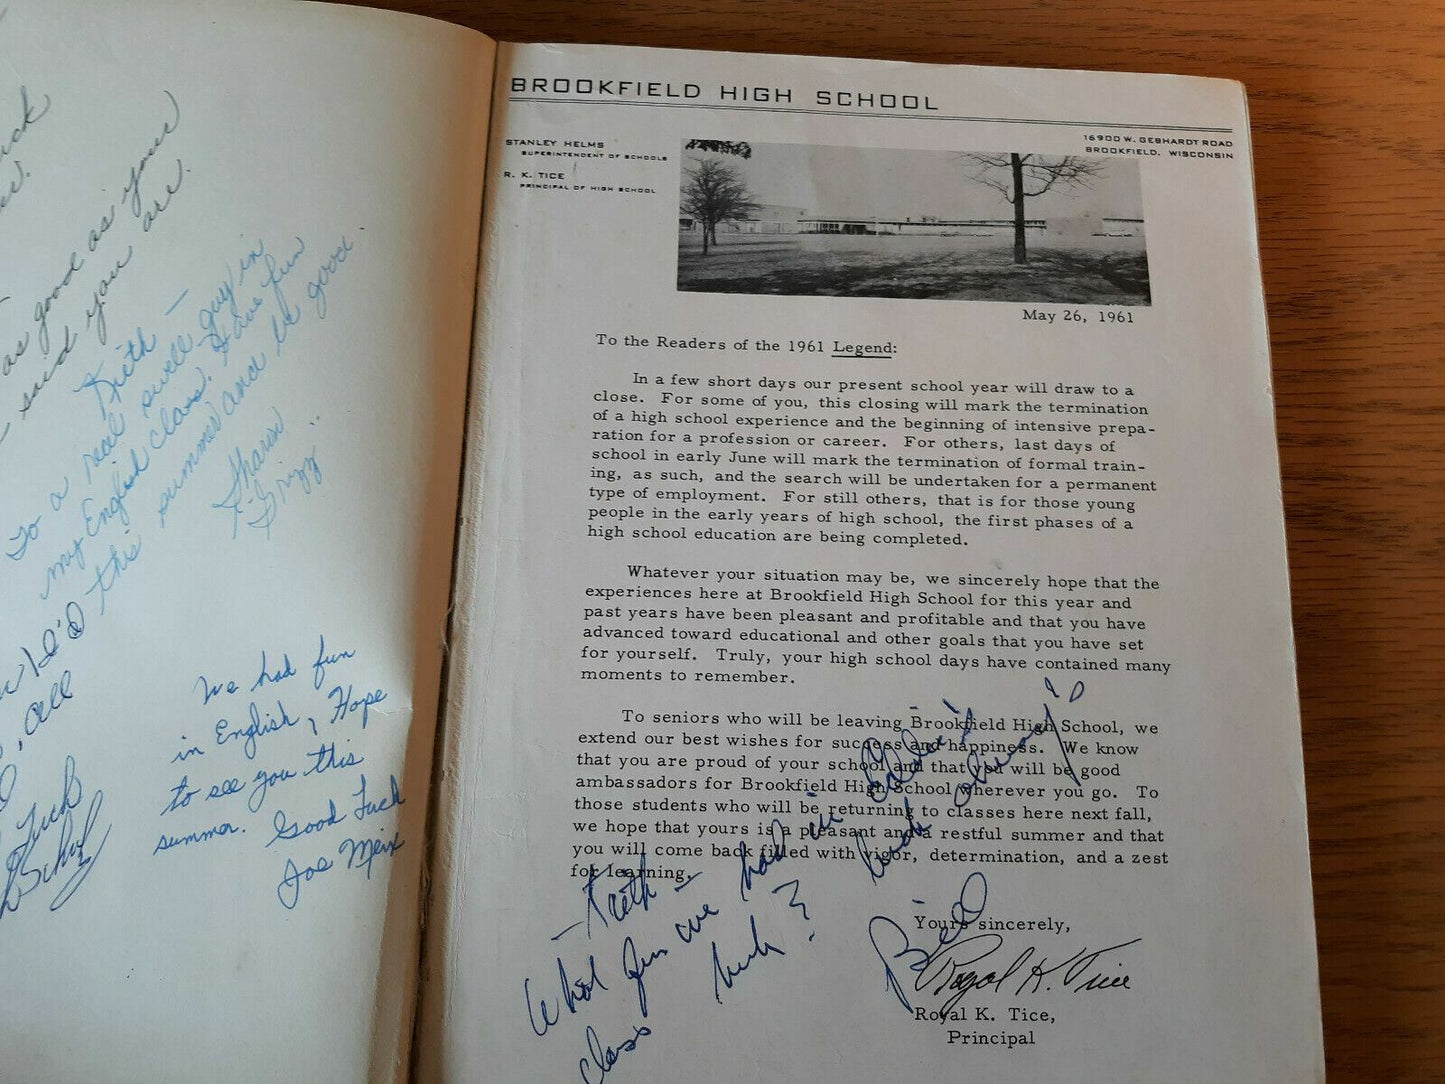 ck
as good as your
said you are.
Kieth —
To a real swell guy in
my English class. Have fun
this summer and be good
Sharon
Grizz
all
Luck
We had fun
in English, Hope
to see you this
summer. Good Luck
Joe Meix
BROOKFIELD HIGH SCHOOL
STANLEY HELMS
SUPERINTENDENT OF SCHOOLS
R. K. TICE
PRINCIPAL OF HIGH SCHOOL
16900 W. GEBHARDT ROAD
BROOKFIELD, WISCONSIN
May 26, 1961
To the Readers of the 1961 Legend:
In a few short days our present school year will draw to a
close. For some of you, this closing will mark the termination
of a high school experience and the beginning of intensive prepa-
ration for a profession or career. For others, last days of
school in early June will mark the termination of formal train-
ing, as such, and the search will be undertaken for a permanent
type of employment. For still others, that is for those young
people in the early years of high school, the first phases of a
high school education are being completed.
Whatever your situation may be, we sincerely hope that the
experiences here at Brookfield High School for this year and
past years have been pleasant and profitable and that you have
advanced toward educational and other goals that you have set
for yourself. Truly, your high school days have contained many
moments to remember.
To seniors who will be leaving Brookfield High School, we
extend our best wishes for success and happiness. We know
that you are proud of your school and that you will be good
ambassadors for Brookfield High School wherever you go. To
those students who will be returning to classes here next fall,
we hope that yours is a pleasant and a restful summer and that
you will come back filled with vigor, determination, and a zest
for learning.
Yours sincerely,
Royal K. Tice
Royal K. Tice,
Principal
— Kieth —
What fun we had in
class huh? Good luck always
Bill